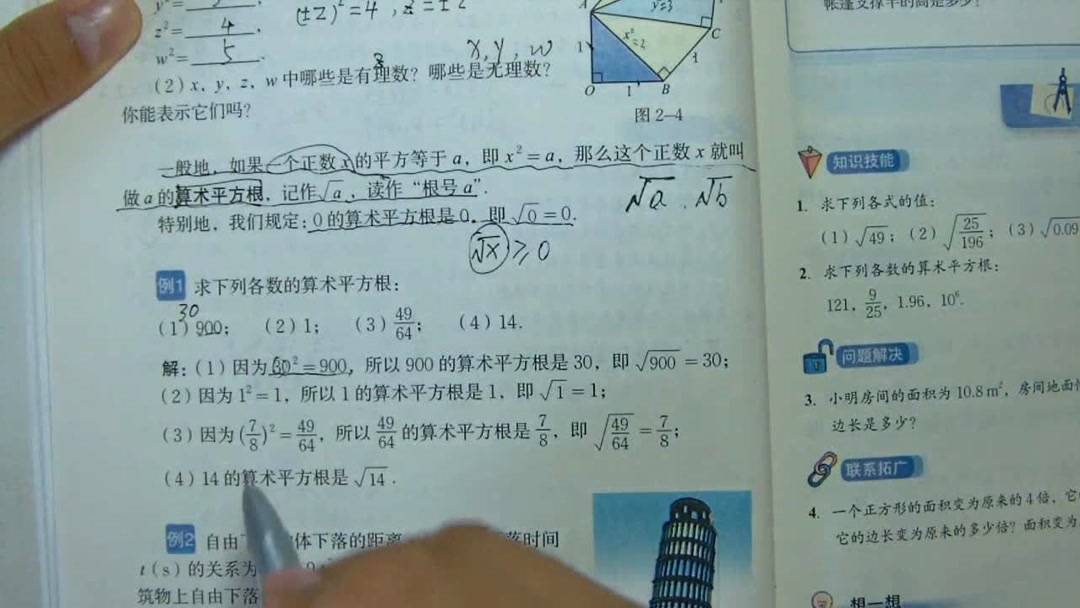 z²= 4 .
(±2)²=4, z=±2
w²= 5 .
x, y, w
(2) x, y, z, w 中哪些是有理数？哪些是无理数？
你能表示它们吗？
y²=3
x²=2
A
C
O
B
1
1
1
图 2-4
一般地，如果一个正数 x 的平方等于 a，即 x²=a，那么这个正数 x 就叫
做 a 的算术平方根，记作√a，读作“根号 a”.
√a . √b
特别地，我们规定：0 的算术平方根是 0，即 √0=0.
√x ≥ 0
例1 求下列各数的算术平方根：
30
(1) 900； (2) 1； (3) 49/64； (4) 14.
解：(1) 因为30²=900，所以 900 的算术平方根是 30，即 √900=30；
(2) 因为 1²=1，所以 1 的算术平方根是 1，即 √1=1；
(3) 因为 (7/8)²=49/64，所以 49/64 的算术平方根是 7/8，即 √(49/64)=7/8；
(4) 14 的算术平方根是 √14.
例2 自由下 体下落的距离 落时间
t(s) 的关系为
筑物上自由下落
知识技能
1. 求下列各式的值：
(1) √49； (2) √(25/196)； (3) √0.09
2. 求下列各数的算术平方根：
121, 9/25, 1.96, 10⁶.
问题解决
3. 小明房间的面积为 10.8 m²，房间地面
边长是多少？
联系拓广
4. 一个正方形的面积变为原来的 4 倍，它
它的边长变为原来的多少倍？面积变为
想一想